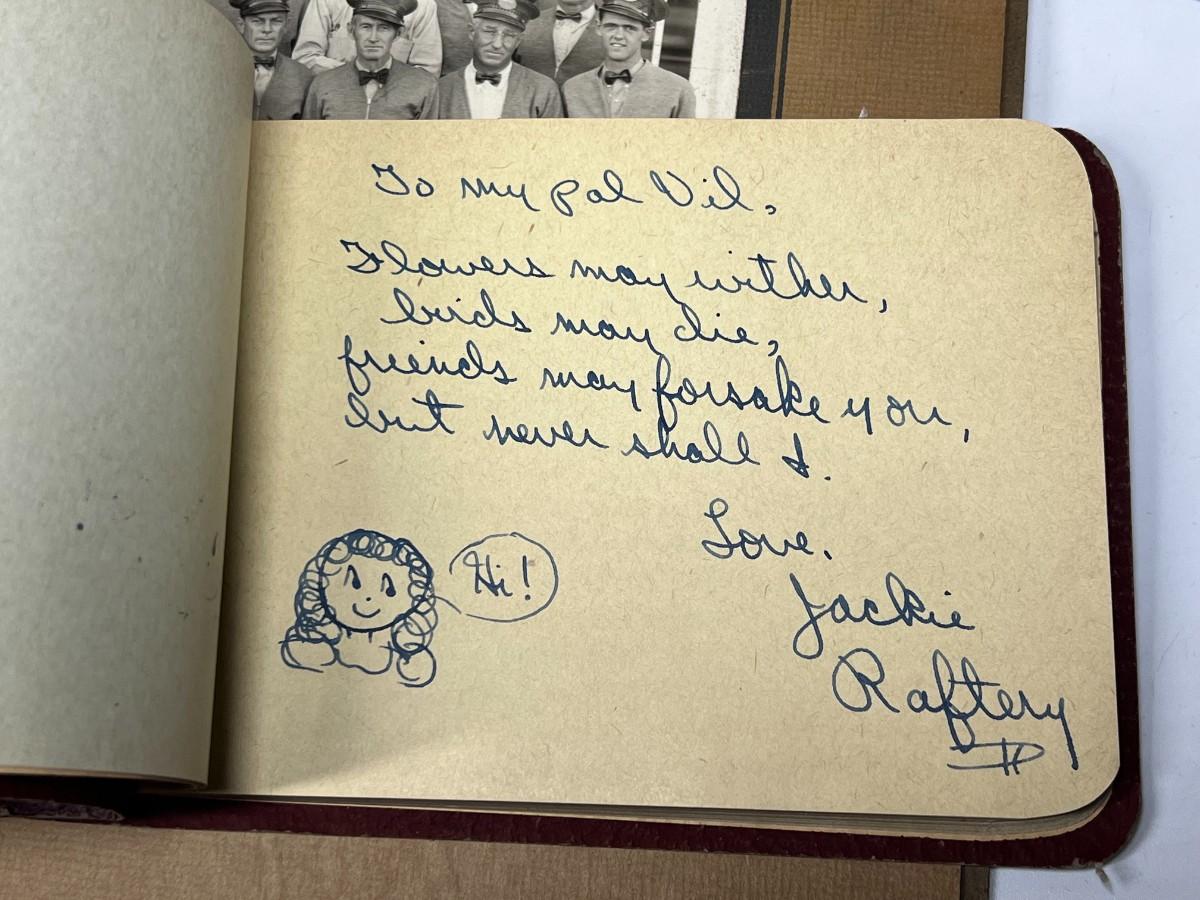 To my pal Vil,
Flowers may wither,
birds may die,
friends may forsake you,
but never shall I.
Love,
Jackie
Raftery
Hi!